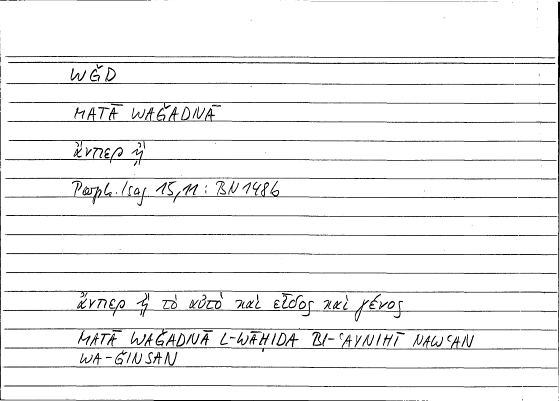 WǦD
MATĀ WAǦADNĀ
ἄνπερ ᾖ
Porph. Isag 15,11 : BN 148b
ἄνπερ ᾖ τὸ αὐτὸ καὶ εἶδος καὶ γένος
MATĀ WAǦADNĀ L-WĀḤIDA BI-ʿAYNIHĪ NAWʿAN
WA-ǦINSAN